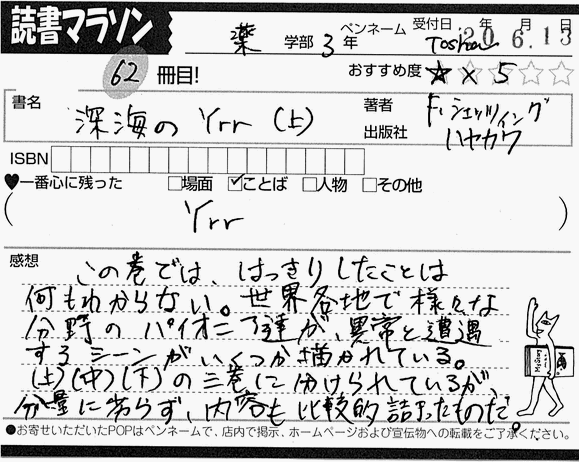 読書マラソン
薬 学部 3年 ペンネーム Toshi 受付日 20年 6月 13日
62 冊目! おすすめ度 ★×5☆☆☆
書名 深海のYrr(上) 著者 F.シェッツィング
出版社 ハヤカワ
ISBN
♥一番心に残った □場面 ☑ことば □人物 □その他
( Yrr )
感想
この巻では、はっきりしたことは
何もわからない。世界各地で様々な
分野のパイオニア達が、異常と遭遇
するシーンがいくつか描かれている。
(上)(中)(下)の三巻に分けられているが、
分量に劣らず、内容も比較的詰まったものだ。
●お寄せいただいたPOPはペンネームで、店内で掲示、ホームページおよび宣伝物への転載をご了承ください。